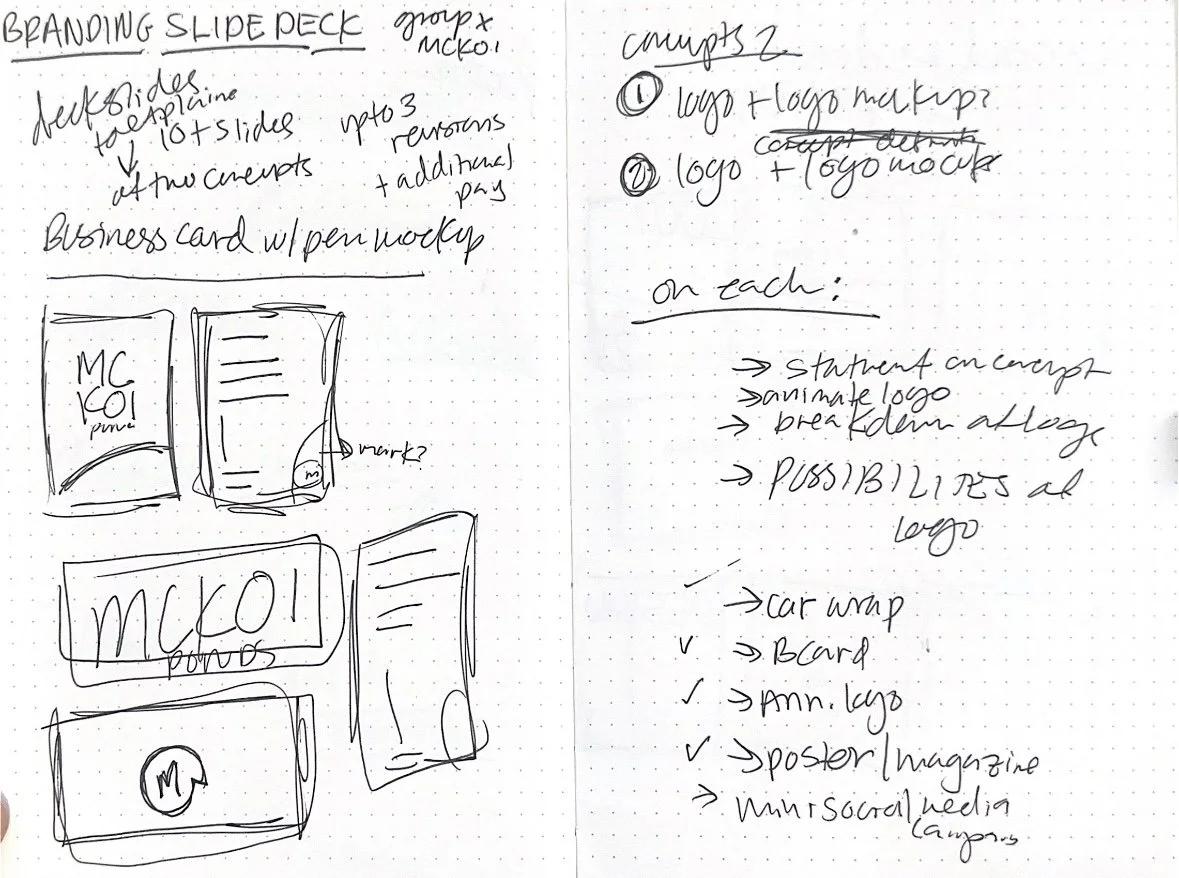 BRANDING SLIDE DECK
group x
MCKOI
deck slides
to explaine
10 + slides
of two concepts
up to 3
revisions
+ additional
pay
Business card w/ pen mockup
MC
KOI
mark?
m
MCKOI
PONDS
M
concepts 2
① logo + logo mockup?
② logo + logo mockup
on each:
→ statment on concept
→ animate logo
→ breakdown of logo
→ POSSIBILITES of
logo
✓ → car wrap
✓ → Bcard
✓ → Ann. logo
✓ → poster / magazine
→ mini social media